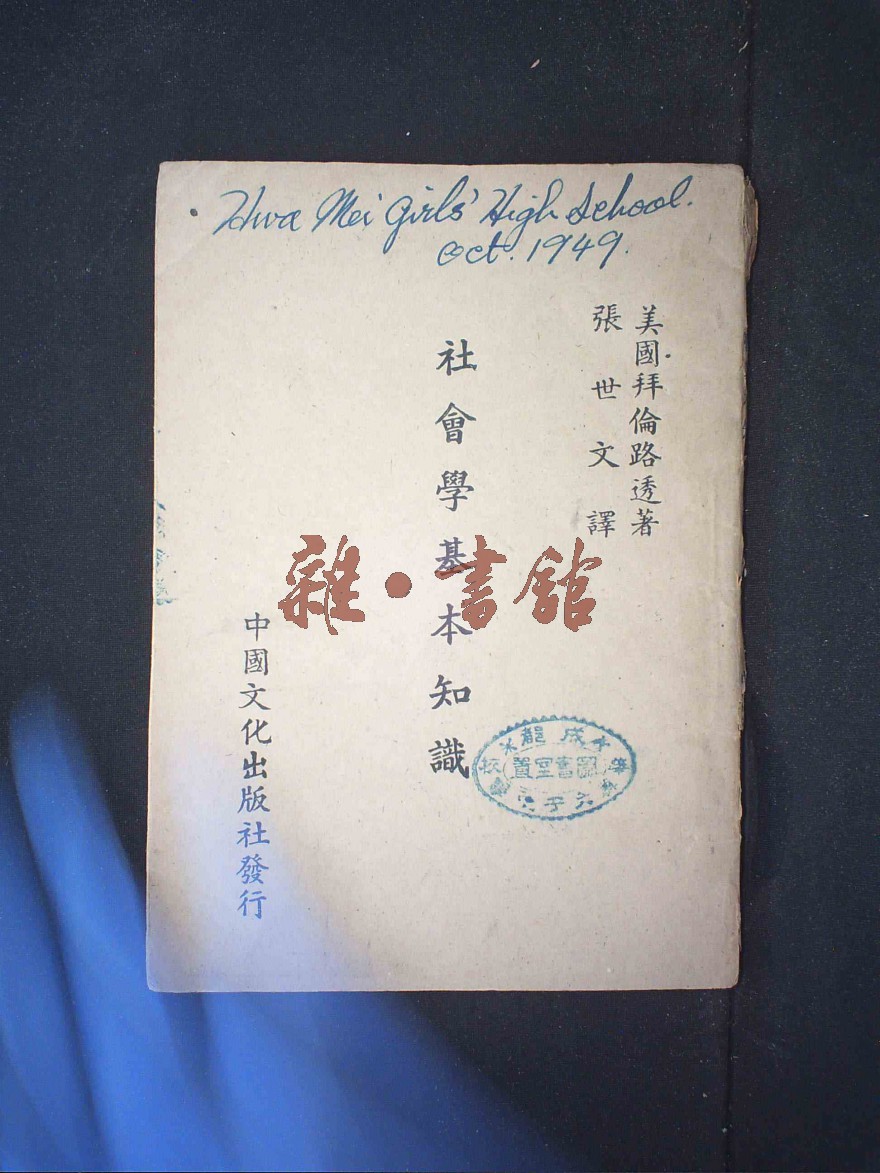 Hwa Mei Girls' High School.
Oct. 1949.
美國拜倫路透著
張世文譯
社會學基本知識
中國文化出版社發行
雜·書館